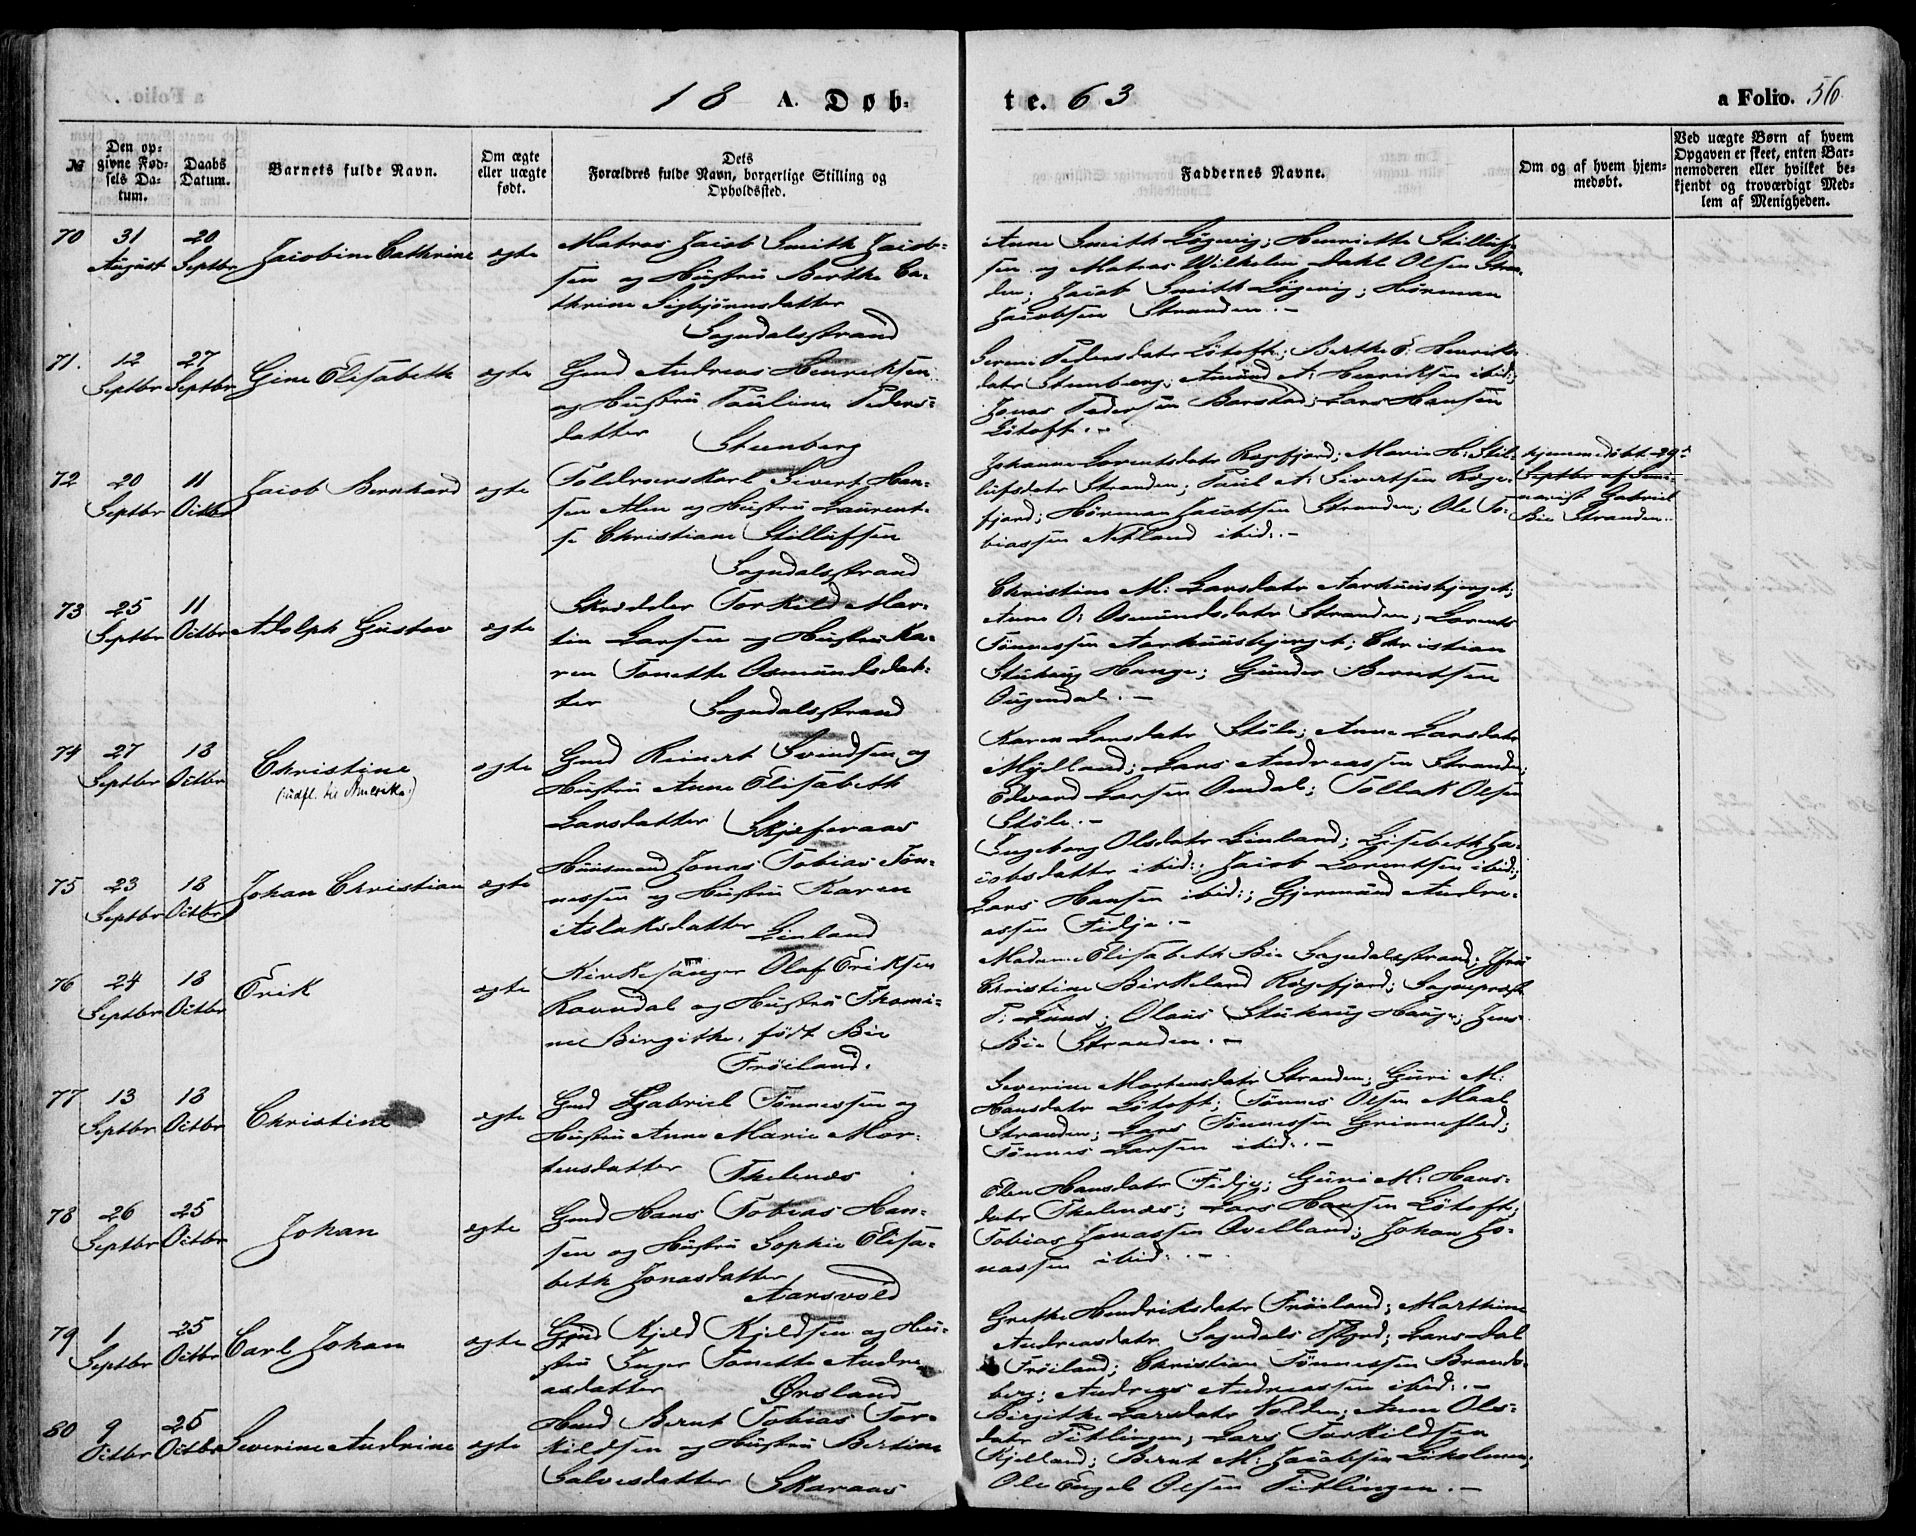 18 A. Døb- te. 63 a Folio. 56.
№
Den op-
givne Fød-
sels Da-
tum.
Daabs
Datum.
Barnets fulde Navn.
Om ægte
eller uægte
født.
Dets
Forældres fulde Navn, borgerlige Stilling og
Opholdssted.
Faddernes Navne.
Om og af hvem hjem-
medøbt.
Ved uægte Børn af hvem
Opgaven er skeet, enten Bar-
nemoderen eller hvilket be-
kjendt og troværdigt Med-
lem af Menigheden.
70 31 August 20 Septbr Jacobine Cathrine ægte
Matros Jacob Smith Jacob-
sen og Hustru Berthe Ca-
thrine Sigbjørnsdatter
Sogndalsstrand
Anne Smith Løgevig; Henriette Stilluf-
sen og Matros Wilhelm Dahl Olsen Stran-
den; Jacob Smith Løgevig; Hørman
Jacobsen Stranden.-
71. 12 Septbr 27 Septbr Gine Elisabeth ægte
Gmd Andreas Henriksen
og Hustru Pauline Peders-
datter Steenberg
Serene Pedersdatr Løtoft; Berthe E: Henriks-
datr Steenberg; Amund A: Henriksen ibid:;
Jonas Pedersen Barstad; Lars Hansen
Løtoft.-
72 20 Septbr 11 Octbr Jacob Bernhard ægte
Toldroerskarl Sivert Han-
sen Alen og Hustru Laurent-
se Christiane Stillufsen
Sogndalsstrand
Johanne Lorentsdatr Rægefjord; Marie H: Stil-
lufsdatr Stranden; Paul A: Sivertsen Ræge-
fjord; Hørman Jacobsen Stranden; Ole To-
biassen Netland ibid:.-
hjemmedøbt 29d
Septbr af Semi-
narist Gabriel
Bie Stranden.
73 25 Septbr 11 Octbr Adolph Gustav ægte
Skrædder Torkild Mar-
tin Larsen og Hustru Ka-
ren Tonette Osmundsdat-
ter Sogndalsstrand
Christine M: Larsdatr Aarhuusbjerget;
Anne O: Osmundsdatr Stranden; Lorents
Tønnessen Aarhuusbjerget; Christian
Stuhaug Hauge; Gunder Berntsen
Ougendal.-
74 27 Septbr 18 Octbr Christine ægte
(:udfl. til Amerika:)
Gmd Reinert Svendsen og
Hustru Anne Elisabeth
Larsdatter Skjefveraas
Karen Larsdatr Støle; Anne Larsdatr
Mydland; Lars Andreassen Stranden;
Edvard Larsen Omdal; Tollak Olsen
Støle.-
75 23 Septbr 18 Octbr Johan Christian ægte
Huusmand Jonas Tobias Tøn-
nessen og Hustru Karen
Aslaksdatter Linland
Ingeborg Olsdatr Linland; Lisebeth Ja-
cobsdatter ibid:; Jacob Lorentsen ibid:;
Lars Hansen ibid:; Gjermund Andre-
assen Fidje.-
76 24 Septbr 18 Octbr Erik ægte
Kirkesanger Olaf Eriksen
Ravndal og Hustru Thomi-
ne Birgithe, født Bie
Frøiland.
Madame Elisabeth Bie Sogndalsstrand; Jfru
Christine Birkeland Rægefjord; Sognepræst
P: Lund; Olaus Stuhaug Hauge; Jens
Bie Stranden.-
77 13 Septbr 18 Octbr Christine ægte
Gmd Gabriel Tønnessen og
Hustru Anne Marie Mor-
tensdatter Thelenæs
Severine Mortensdatr Stranden; Guri M:
Hansdatr Løtoft; Tønnes Olsen Maal
Stranden; Lars Tønnessen Grinnested;
Tønnes Larsen ibid:.-
78 26 Septbr 25 Octbr Johan ægte
Gmd Hans Tobias Han-
sen og Hustru Sophie Elisa-
beth Jonasdatter
Aarsvold
Elen Hansdatr Fidje; Guri M: Hans-
datr Thelenæs; Lars Hansen Løtoft;
Tobias Jonassen Qvelland; Johan Jo-
nassen ibid:.-
79 1 Septbr 25 Octbr Carl Johan ægte
Gmd Kjeld Kjeldsen og Hu-
stru Inger Tonette Andre-
asdatter Ørsland
Grethe Hendriksdatr Frøiland; Marthine
Andreasdatr Sogndals Fjord; Lars Dal
Frøiland; Christian Tønnessen Brands-
berg; Andreas Andreassen ibid:.-
80 9 Octbr 25 Octbr Severine Andrine ægte
Hmd Bernt Tobias Tor-
kildsen og Hustru Bertine
Salvesdatter Skaraas
Birgithe Larsdatr Volden; Anne Ols-
datr Titlingen; Lars Torkildsen
Kjelland; Bernt M: Jacobsen Liholmen;
Ole Engel Olsen Titlingen.-